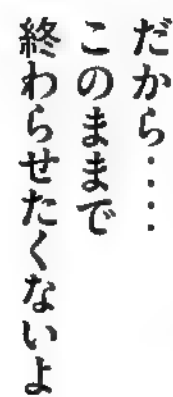 だから・・・・
このままで
終わらせたくないよ